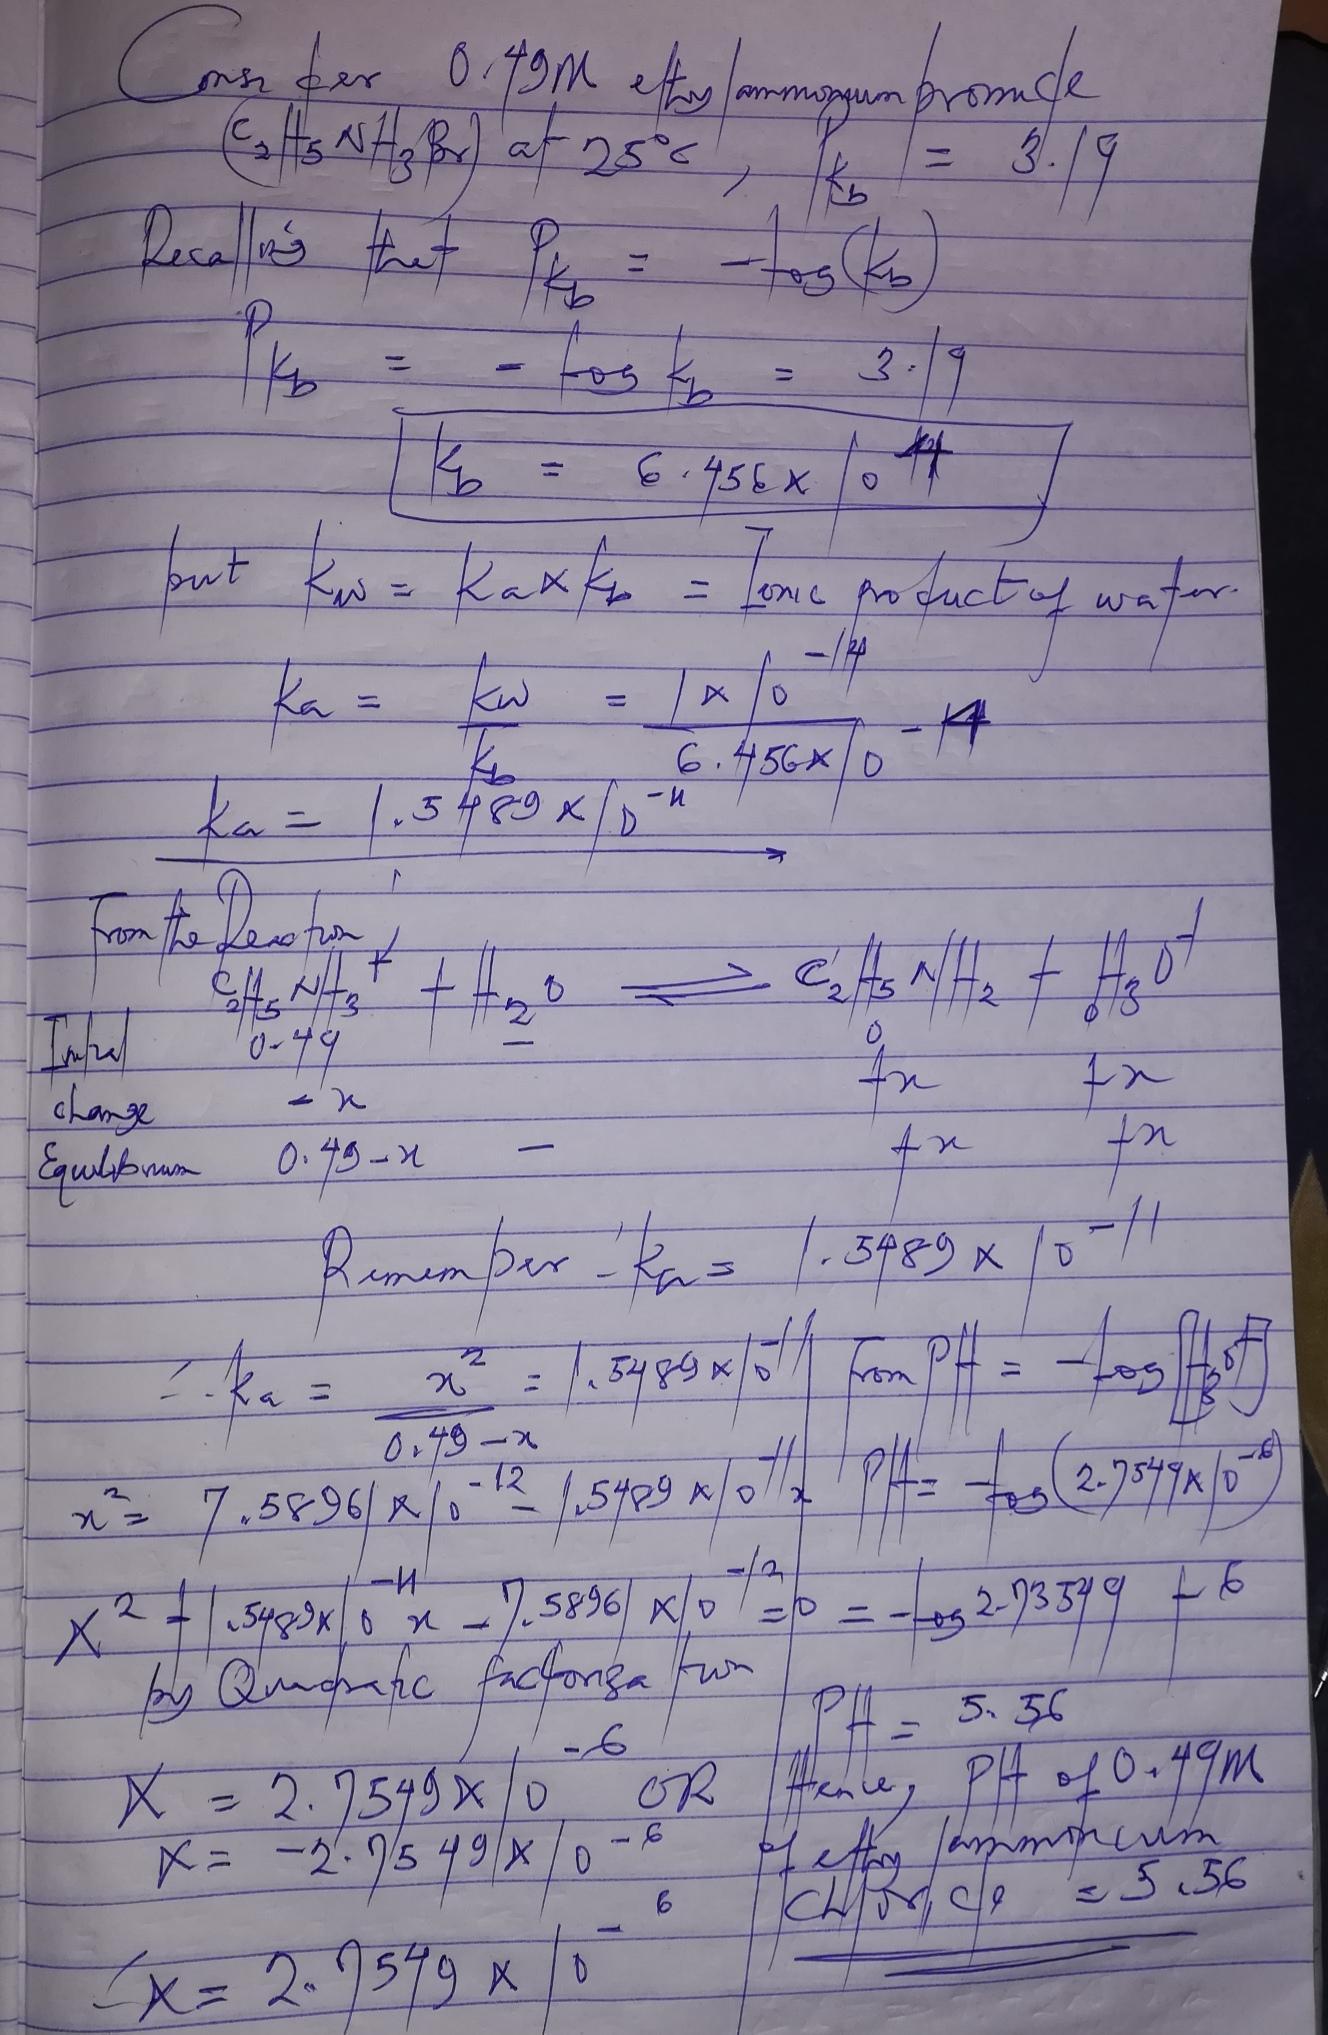 Consider 0.49M ethylammonium bromide
(C₂H₅NH₃Br) at 25°c, Pkb = 3.19
Recalling that Pkb = -log(kb)
Pkb = - log kb = 3.19
kb = 6.456 x 10⁻⁴
but kw = Ka x kb = Ionic product of water.
ka = kw/kb = 1 x 10⁻¹⁴/6.456 x 10⁻⁴
ka = 1.5489 x 10⁻¹¹
From the Reaction
C₂H₅NH₃⁺ + H₂O ⇌ C₂H₅NH₂ + H₃O⁺
Initial 0.49 – 0 0
change -x +x +x
Equilibrium 0.49-x – +x +x
Remember ka = 1.5489 x 10⁻¹¹
∴ ka = x²/0.49-x = 1.5489 x 10⁻¹¹
x² = 7.5896 x 10⁻¹² - 1.5489 x 10⁻¹¹x
X² + 1.5489 x 10⁻¹¹x - 7.5896 x 10⁻¹² = 0
by Quadratic factorization
X = 2.7549 x 10⁻⁶ OR
X = -2.7549 x 10⁻⁶
∴ X = 2.7549 x 10⁻⁶
From PH = -log[H₃O⁺]
PH = -log(2.7549 x 10⁻⁶)
= -log 2.73549 + 6
PH = 5.56
Hence, PH of 0.49M
of ethylammonium
chloride = 5.56